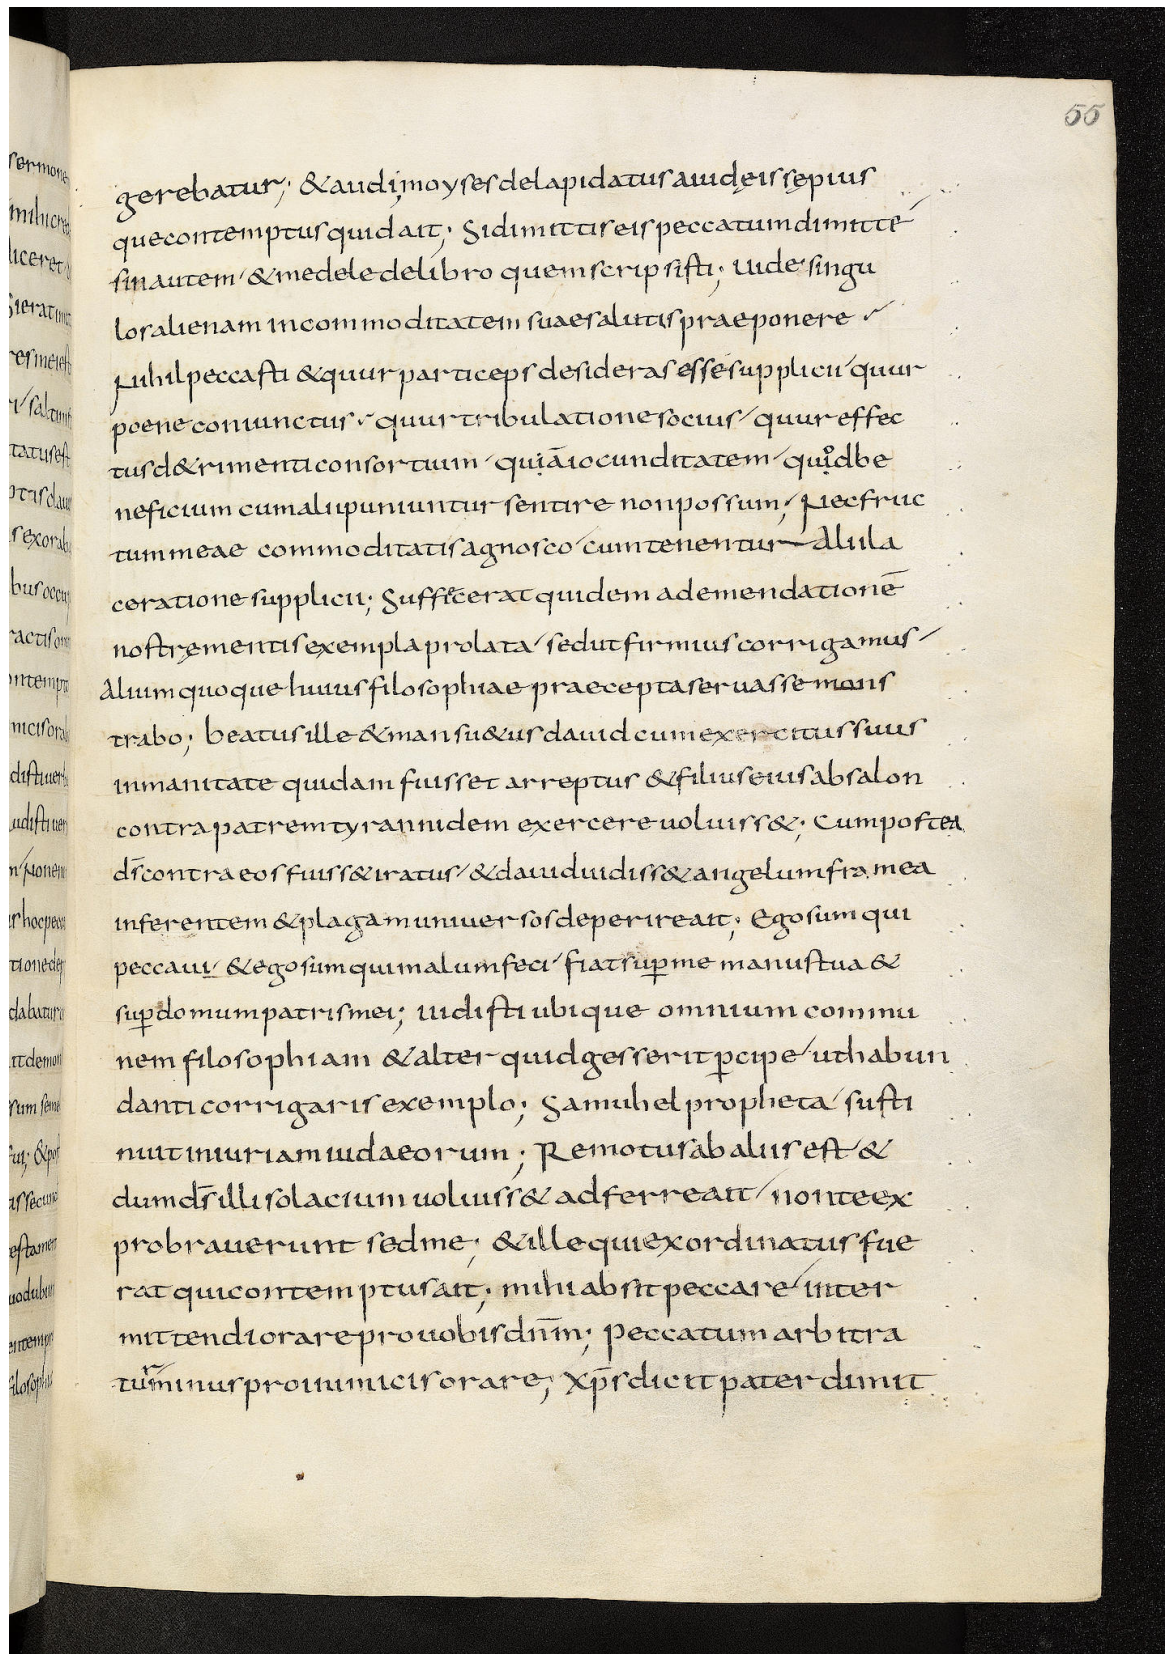 55
gerebatur; & audi moyses delapidatus a iudęis sępius
que contemptus quid ait; Si dimittis eis peccatum dimitte
sin autem & me dele de libro quem scripsisti; uide singu
los alienam incommoditatem suae salutis praeponere
Nihil peccasti & quur particeps desideras esse supplicii quur
poene coniunctus quur tribulatione socius quur effec
tus d&rimenti consortium quiā iocunditatem quod be
neficium cum alii puniuntur sentire non possum; Nec fruc
tum meae commoditatis agnosco cum tenentur Alii la
ceratione supplicii; Suffecerat quidem ad emendationē
nostrę mentis exempla prolata sed ut firmius corrigamus
Alium quoque huius filosophiae praecepta seruasse mons
trabo; beatus ille & mansu&us dauid cum exercitus suus
inmanitate quidam fuisset arreptus & filius eius absalon
contra patrem tyrannidem exercere uoluiss&; Cum postea
dś contra eos fuiss& iratus & dauid uidiss& angelum framea
inferentem & plagam uniuersos deperire ait; Ego sum qui
peccaui & ego sum qui malum feci fiat sup me manus tua &
sup domum patris mei; uidisti ubique omnium commu
nem filosophiam & alter quid gesserit pcipe ut habun
danti corrigaris exemplo; Samuhel propheta susti
nuit iniuriam iudaeorum; Remotus ab aliis est &
dum dś illi solacium uoluiss& adferre ait non te ex
probrauerunt sed me; & ille qui exordinatus fue
rat qui contemptus ait; mihi absit peccare inter
mittendi orare pro uobis dn̄m; peccatum arbitra
tur minus pro inimicis orare; Xp̄s dicit pater dimit